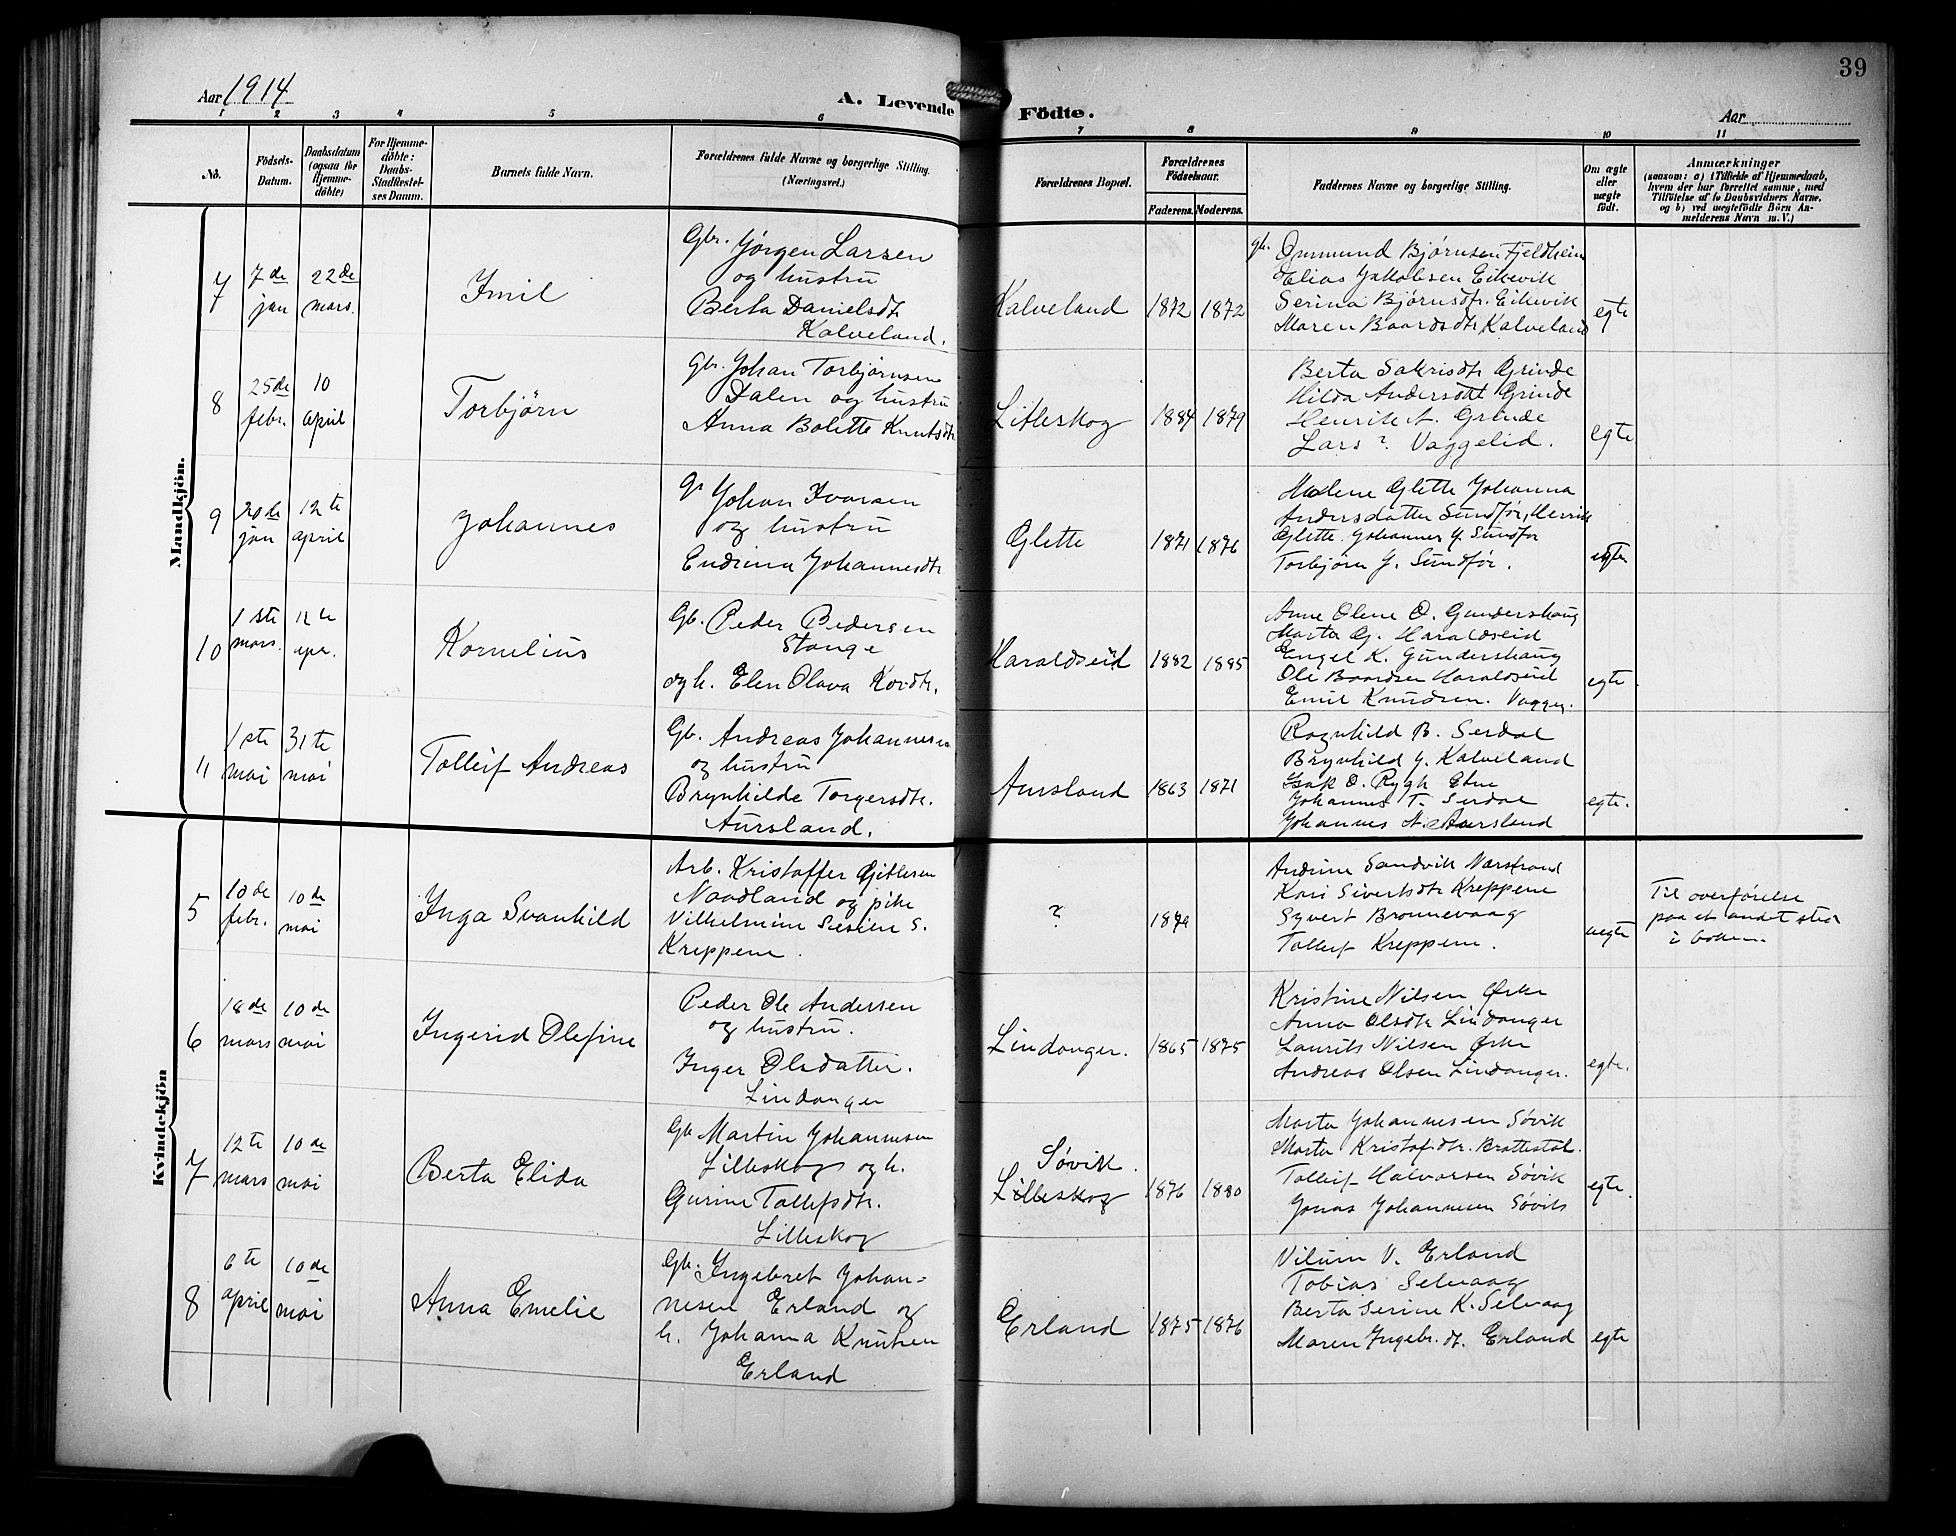 39
Aar 1914
A. Levende Födte.
Aar
1 2 3 4 5 6 7 8 9 10 11
No.
Födsels-Datum.
Daabsdatum (ogsaa for Hjemme-döbte)
For Hjemme-döbte: Daabs-Stadfæstel-ses Datum.
Barnets fulde Navn.
Forældrenes fulde Navne og borgerlige Stilling. (Næringsvei.)
Forældrenes Bopæl.
Forældrenes Födselsaar.
Faderens. Moderens.
Faddernes Navne og borgerlige Stilling.
Om ægte eller uægte födt.
Anmærkninger
(saasom: a) i Tilfælde af Hjemmedaab, hvem der har forrettet samme, med Tilföielse af to Daabsvidners Navne, og b) ved uegtefödte Börn An-melderens Navn m. V.)
Mandkjön.
7
7de jan
22de mars.
Imil
Gbr. Jørgen Larsen
og hustru
Berta Danielsdt.
Kalveland.
Kalveland
1872
1872
gb. Onmund Bjørnsen Fjeldheim
Elias Jakobsen Eikevik
Serina Bjørnsdtr. Eikevik
Maren Baardsdtr Kalveland
egte
8
25de febr.
10 april
Torbjörn
Gbr. Johan Torbjørnsen
Dalen og hustru
Anna Bolette Knutsdtr
Litleskog
1884
1879
Berta Sakrisdtr Grinde
Hilda Andersdtt Grinde
Henrik A. Grinde
Lars ? Vaggelid.
egte
9
20de jan
12te april
Johannes
Johan Ivarsen
og hustru
Endrina Johannesdtr
Glette
1871
1876
Malene Glette Johanna
Andersdatter Sundfør, Henrik
Glette. Johannes J. Sundfør
Torbjørn J. Sundfør.
egte
10
1ste mars.
12te apr.
Kornelius
Gb. Peder Pedersen
Stange
og h. Elen Olava
Haraldseid
1882
1885
Anne Olene O. Gundershaug
Marta G. Haraldseid
Engel K. Gundershaug
Ole Baardsen Haraldseid
Emil Knudsen.
egte
11
1ste mai
31te mai
Tolleif Andreas
Gb. Andreas Johannesen
og hustru
Brynhilde Torgersdtr.
Aursland.
Aursland
1863
1871
Ragnhild B. Serdal
Brynhild J. Kalveland
Isak O. Rygh Etne
Johannes T. Serdal
Johannes A. Aursland
egte.
Kvindekjön
5
10de febr.
10de mai
Inga Svanhild
Arb. Kristoffer Gitlesen
Naadland og pike
Vilhelmine S.
Kreppene.
?
1874
Andrine Sandvik Nærstrand
Kari Sivertsdtr Kreppene
Syvert Bronnevaag
Tolleif Kreppene.
uegte
Til overførelse
paa et andet sted
i boken.
6
18de mars
10de mai
Ingerid Olefine
Peder Ole Andersen
og hustru.
Inger Olsdatter.
Lindanger
Lindanger.
1865
1875
Kristine Nilsen Ørke
Anna Olsdtr Lindanger
Laurits Nilsen Ørke
Andreas Olsen Lindanger.
egte.
7
12te mars
10de mai
Berta Elida
Gb Martin Johannesen
Lilleskog og h.
Gurine Tollefsdtr.
Lilleskog
Søvik.
Lilleskog
1876
1880
Marta Johannesen Søvik
Marta Kristofdtr. Brattestøl.
Tolleif Halvorsen Søvik
Jonas Johannesen Søvik
egte.
8
6te april
10de mai
Anna Emelie
Gb. Ingebret Johan=
nesen Erland og
h. Johanna Knutsen
Erland
Erland
1875
1876
Vilum V. Erland
Tobias Selvaag
Berta Serine K. Selvaag
Maren Ingebr. dt. Erland
egte